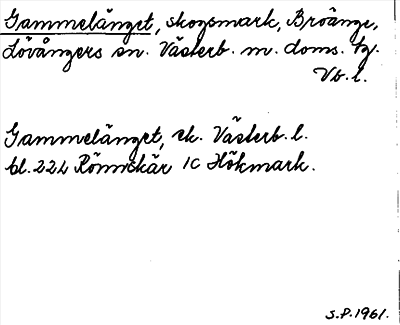 Gammelänget, skogsmark, Broänge,
Lövångers sn. Västerb. m. doms. tg.
Vb. l.
Gammelänget, ek. Västerb. l.
bl. 22L Rönnskär 1c Hökmark.
S.P. 1961.